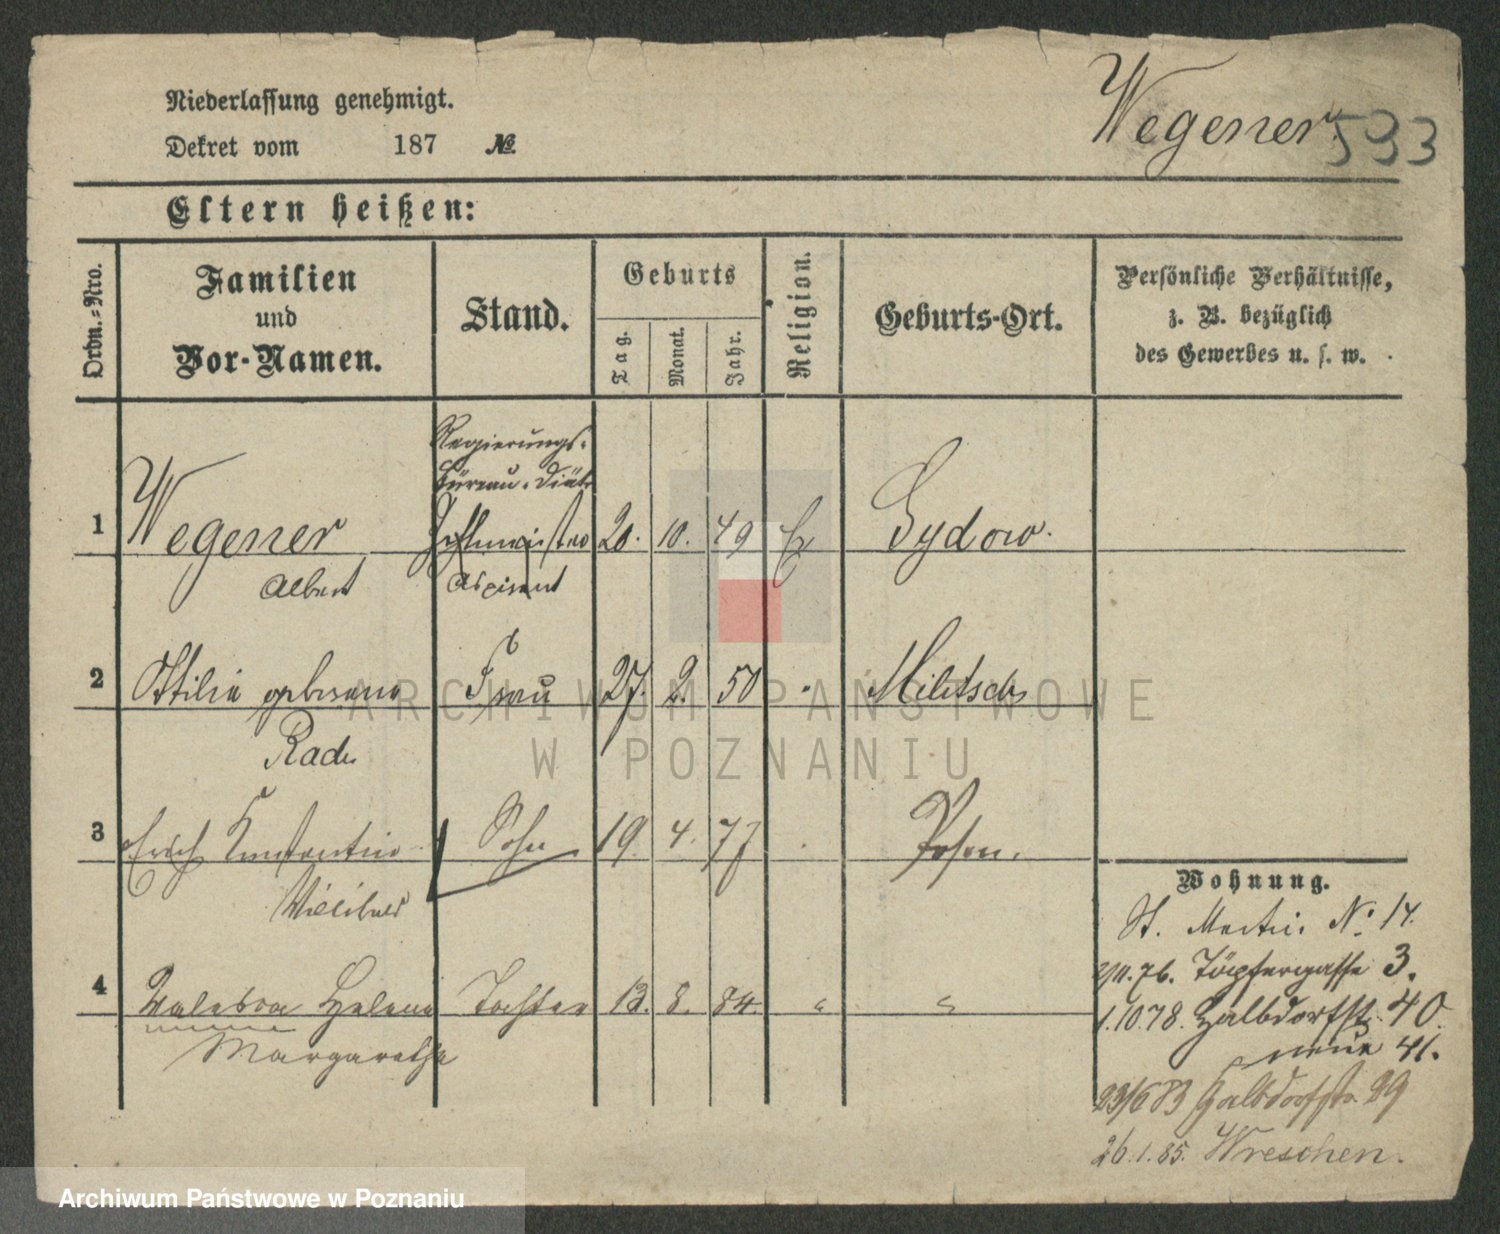 Wegener.
593
Niederlassung genehmigt.
Dekret vom 187 №.
Eltern heißen:
Ordn.-Nro.
Familien
und
Vor-Namen.
Stand.
Geburts
Tag.
Monat.
Jahr.
Religion.
Geburts-Ort.
Persönliche Verhältnisse,
z. B. bezüglich
des Gewerbes u. s. w.
Regierungs-
Büreau-Diät
1 Wegener Zahlmeister 20. 10. 49 Ev Sydow.
Albert Aspirant
2 Ottilie geborene Frau 27. 2. 50 " Militsch
Rade
3 Erich Konstantin Sohn 19. 4. 77 Posen.
Willibald
Wohnung.
St. Martin. No. 14.
2/11.76. Töpfergasse 3.
4 Valeska Helene Tochter 13. 8. 84. " "
Margarethe
1.10.78. Halbdorfst. 40.
neue 41.
23/6 83 Halbdorfstr. 29
26.1.85. Wreschen.
ARCHIWUM PAŃSTWOWE
W POZNANIU
Archiwum Państwowe w Poznaniu